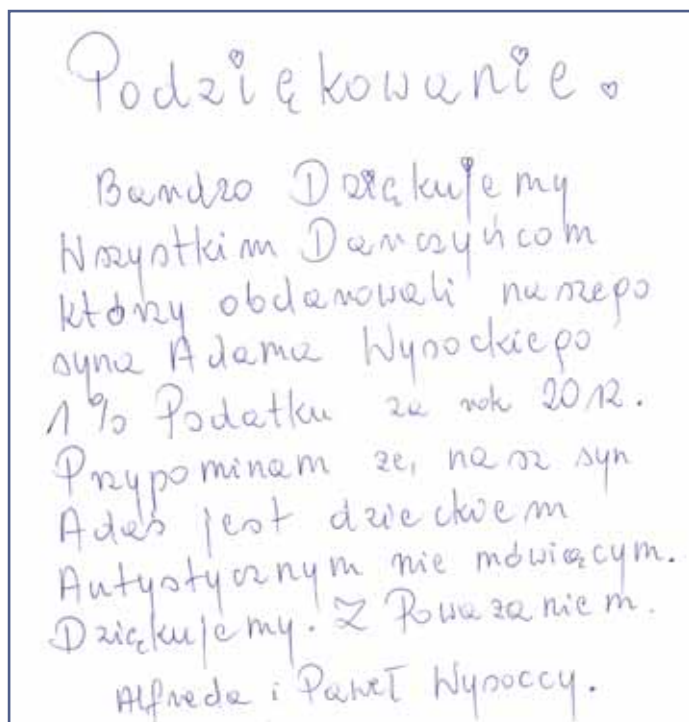 Podziękowanie.
Bardzo Dziękujemy
Wszystkim Darczyńcom
którzy obdarowali naszego
syna Adama Wysockiego
1% Podatku za rok 2012.
Przypominam że, nasz syn
Adaś jest dzieckiem
Autystycznym nie mówiącym.
Dziękujemy. Z Poważaniem.
Alfreda i Paweł Wysoccy.